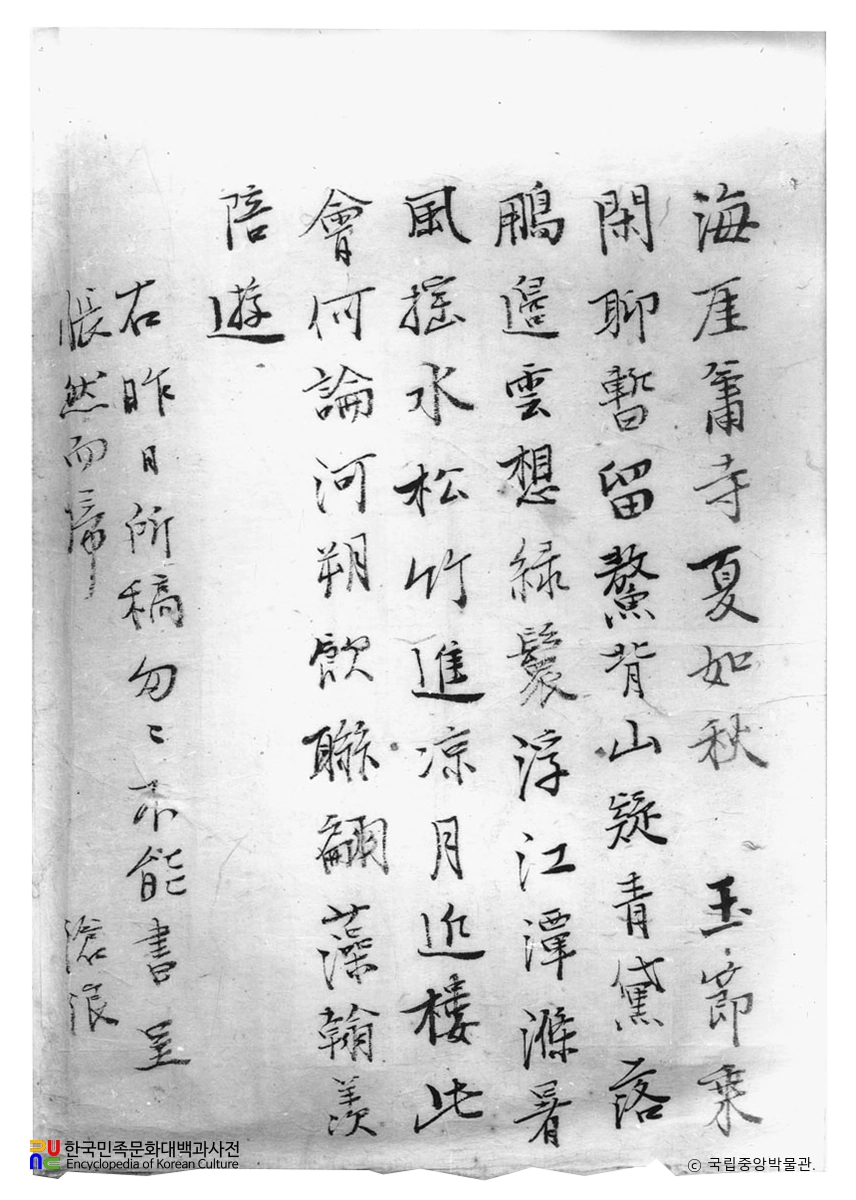 海厓蕭寺夏如秋 玉節乗
閑聊暫留鰲背山疑青黛落
鵬邊雲想緑鬟浮江潭滌暑
風搖水松竹進凉月近樓此
會何論河朔飮聯翩藻翰羡
陪遊
右昨日所稿匆〻未能書呈
悵然而歸 滄浪
한국민족문화대백과사전
Encyclopedia of Korean Culture
© 국립중앙박물관.